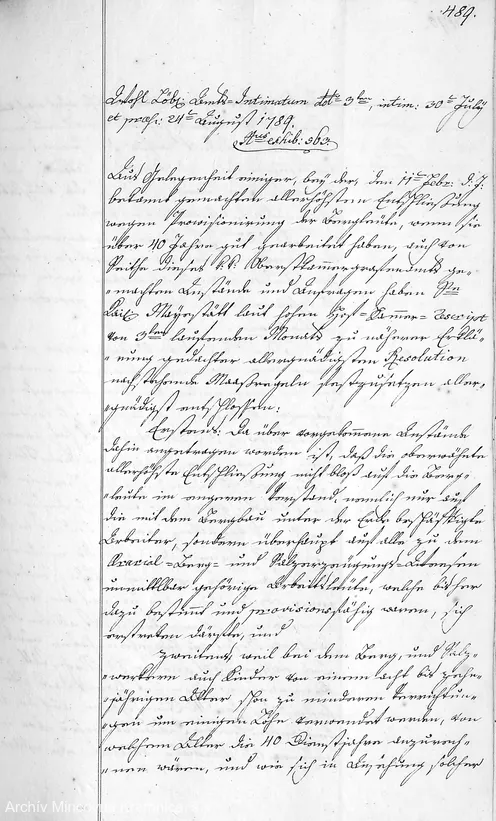 489.
Wohl Löbl. Amts=Intimatum ddto 3ten, intim: 30t July
et praes: 24t August 1789.
Nrus exhib: 363.
Aus Gelegenheit einiger, bey der, den 11ten Febr: d: J:
bekannt gemachten allerhöchsten Entschließung
wegen Provisionirung der Bergleute, wenn sie
über 40 Jahre gut gearbeitet haben, auch von
Seithe dieses k: k: Oberstkammergrafenamts ge-
-machten Anstände und Anfragen haben Se
Kais. Mayestätt laut hohen Hof=Kammer=Rescript
von 3ten laufenden Monats zu näherer Erklä-
-rung gedachter allergnädigsten Resolution
nachstehende Maaßregeln festzusetzen aller-
-gnädigst entschlossen:
Erstens: Da über vorgekommene Anstände
dahin angetragen worden ist, daß die oberwähnte
allerhöchste Entschließung nicht bloß auf die Berg-
-leute im engeren Verstand, nemlich nur auf
die mit dem Bergbau unter der Erde beschäftigte
Arbeiter, sondern überhaupt auf alle zu dem
Aerarial=Berg= und Salzerzeugungs=
unmittlbar gehörige Arbeitsleute, welche bisher
dazu bestimmt und provisionsfähig waren, sich
erstreken därfte, und
zweitens, weil bei dem Berg, und Salz-
-werkern auch Kinder von einem acht bis zehn-
-jährigen Alter schon zu minderen Verrichtun-
-gen um einigen Lohn verwendet werden, von
welchem Alter die 40 Dienstjahre anzurech-
-nen wären, und wie sich in Ansehung solcher
Archiv Mincovne Kremnica